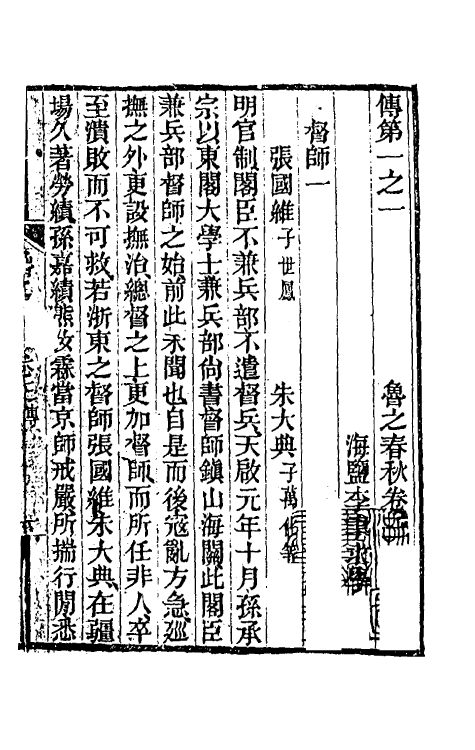 傳第一之一　魯之春秋卷
海鹽李聿求
督師一
張國維子世鳳　朱大典子萬化等
明官制閣臣不兼兵部不遣督兵天啟元年十月孫承
宗以東閣大學士兼兵部尚書督師鎮山海關此閣臣
兼兵部督師之始前此未聞也自是而後寇亂方急巡
撫之外更設撫治總督之上更加督師而所任非人卒
至潰敗而不可救若浙東之督師張國維朱大典在疆
場久著勞績孫嘉績熊汝霖當京師戒嚴所揣行間悉